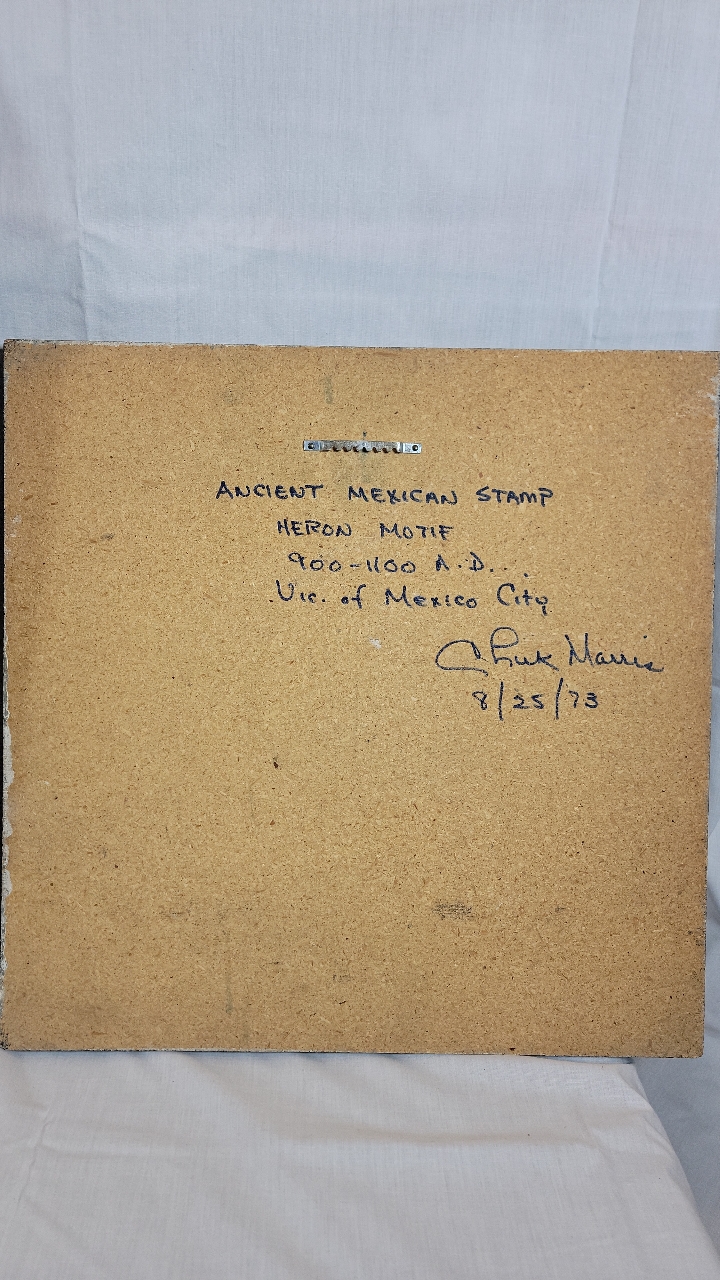 ANCIENT MEXICAN STAMP
HERON MOTIF
900-1100 A.D...
Vic. of Mexico City
Chuk Marris
8/25/73